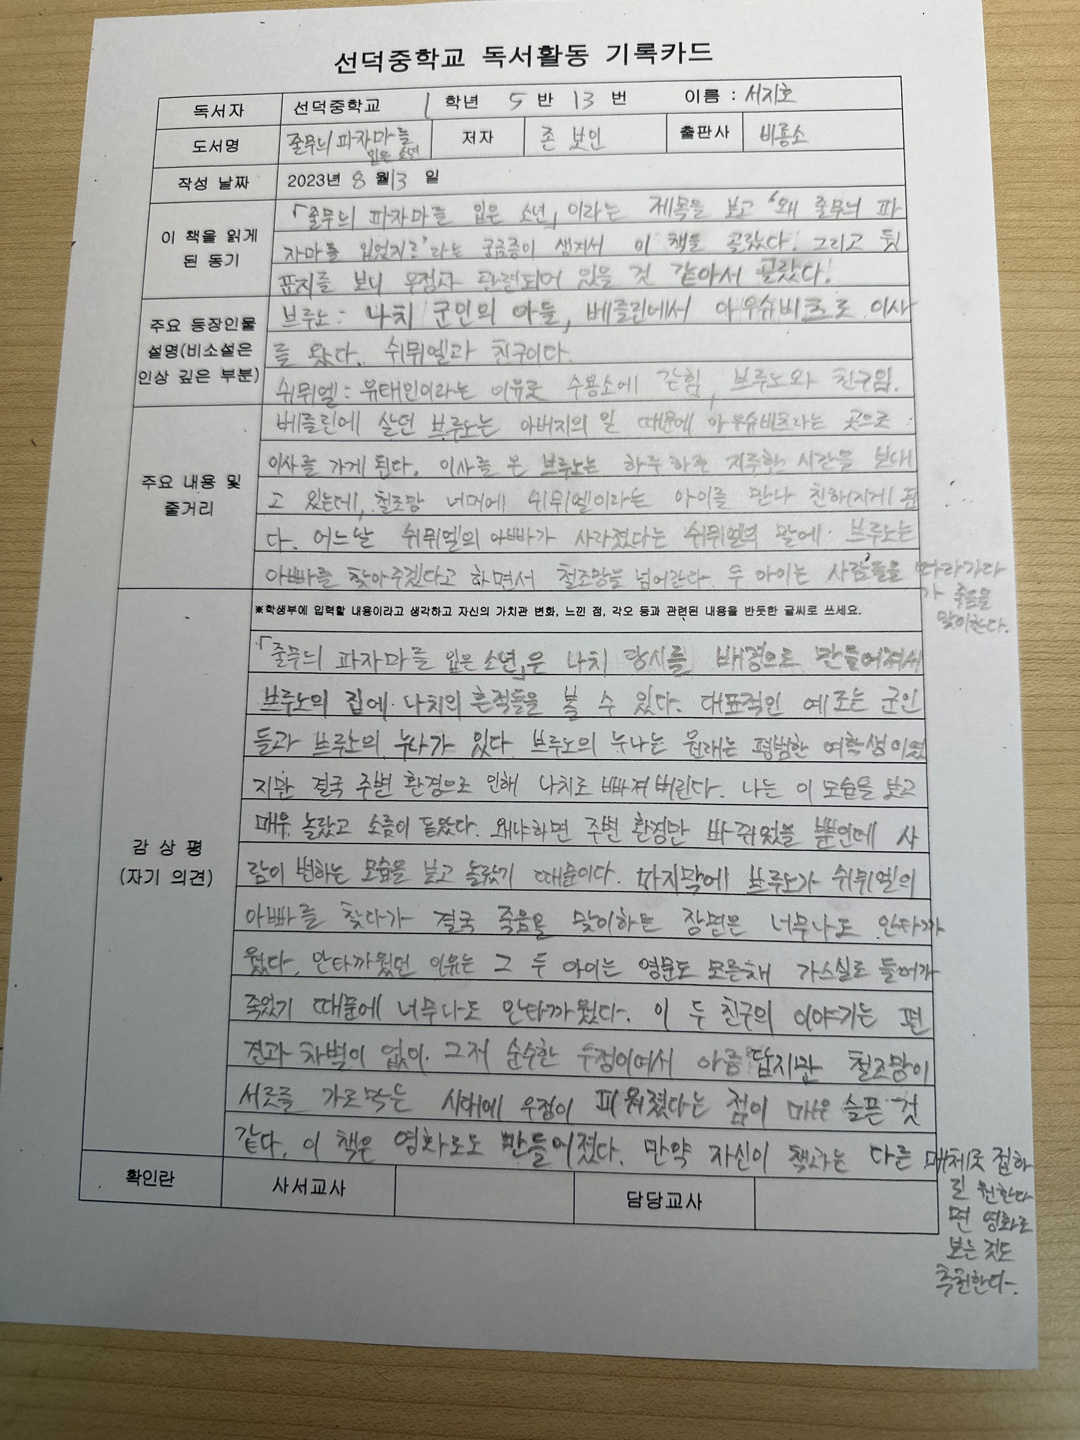 선덕중학교 독서활동 기록카드
독서자 선덕중학교 1 학년 5 반 13 번 이름 : 서지호
도서명 줄무늬 파자마를 입은 소년 저자 존 보인 출판사 비룡소
작성 날짜 2023년 8 월 13 일
이 책을 읽게 된 동기
「줄무늬 파자마를 입은 소년」이라는 제목을 보고 '왜 줄무늬 파
자마를 입었지?'라는 궁금증이 생겨서 이 책을 골랐다. 그리고 뒷
표지를 보니 우정과 관련되어 있을 것 같아서 골랐다!
주요 등장인물 설명(비소설은 인상 깊은 부분)
브루노 : 나치 군인의 아들, 베를린에서 아우슈비츠로 이사
를 왔다. 쉬뮈엘과 친구이다.
쉬뮈엘 : 유태인이라는 이유로 수용소에 갇힘, 브루노와 친구임.
주요 내용 및 줄거리
베를린에 살던 브루노는 아버지의 일 때문에 아우슈비츠라는 곳으로
이사를 가게 된다. 이사를 온 브루노는 하루하루 지루한 시간을 보내
고 있는데, 철조망 너머에 쉬뮈엘이라는 아이를 만나 친해지게 된
다. 어느날 쉬뮈엘의 아빠가 사라졌다는 쉬뮈엘의 말에 브루노는
아빠를 찾아주겠다고 하면서 철조망을 넘어간다. 두 아이는 사람들을 따라가다
가 죽음을
맞이한다.
감상평
(자기 의견)
※학생부에 입력할 내용이라고 생각하고 자신의 가치관 변화, 느낀 점, 각오 등과 관련된 내용을 반듯한 글씨로 쓰세요.
「줄무늬 파자마를 입은 소년」은 나치 당시를 배경으로 만들어져서
브루노의 집에 나치의 흔적들을 볼 수 있다. 대표적인 예로는 군인
들과 브루노의 누나가 있다. 브루노의 누나는 원래는 평범한 여학생이였
지만 결국 주변 환경으로 인해 나치로 빠져버린다. 나는 이 모습을 보고
매우 놀랐고 소름이 돋았다. 왜냐하면 주변 환경만 바뀌었을 뿐인데 사
람이 변하는 모습을 보고 놀랐기 때문이다. 마지막에 브루노가 쉬뮈엘의
아빠를 찾다가 결국 죽음을 맞이하는 장면은 너무나도 안타까
웠다. 안타까웠던 이유는 그 두 아이는 영문도 모른채 가스실로 들어가
죽었기 때문에 너무나도 안타까웠다. 이 두 친구의 이야기는 편
견과 차별이 없이 그저 순수한 우정이여서 아름답지만 철조망이
서로를 가로막는 시대에 우정이 피워졌다는 점이 매우 슬픈 것
같다. 이 책은 영화로도 만들어졌다. 만약 자신이 책과는 다른 매체로 접하
길 원한다
면 영화로
보는 것도
추천한다.
확인란 사서교사 담당교사